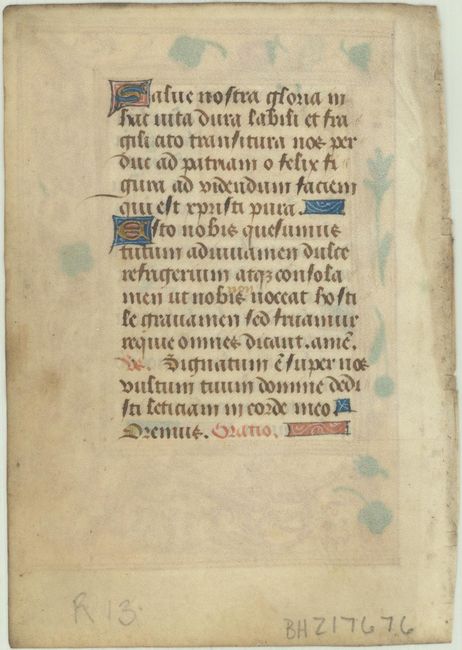 Salue nostra gloria in
hac uita dura labili et fra
gili cito transitura nos per
duc ad patriam o felix fi
gura ad videndum faciem
qui est xpristi pura.
Esto nobis quesumus
tutum adiuuamen dulce
refrigerium atqꝫ consola
men ut nobis non noceat hosti
le grauamen sed fruamur
requie omnes dicant. amē.
Dignatum ē super nos
vultum tuum domine dedi
sti leticiam in corde meo
Oremus. Oratio.
R 13.
BH217676